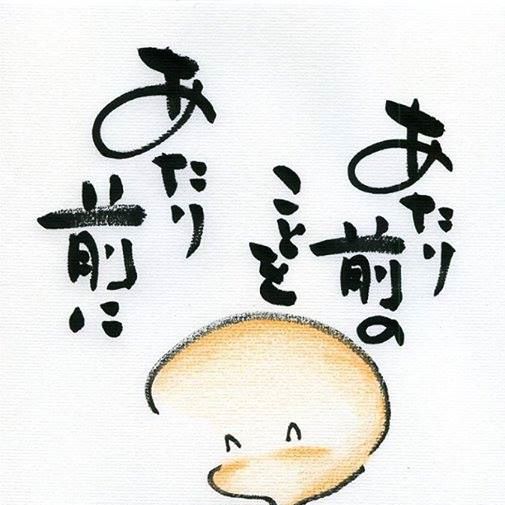 あたり
前の
ことを
あたり
前に